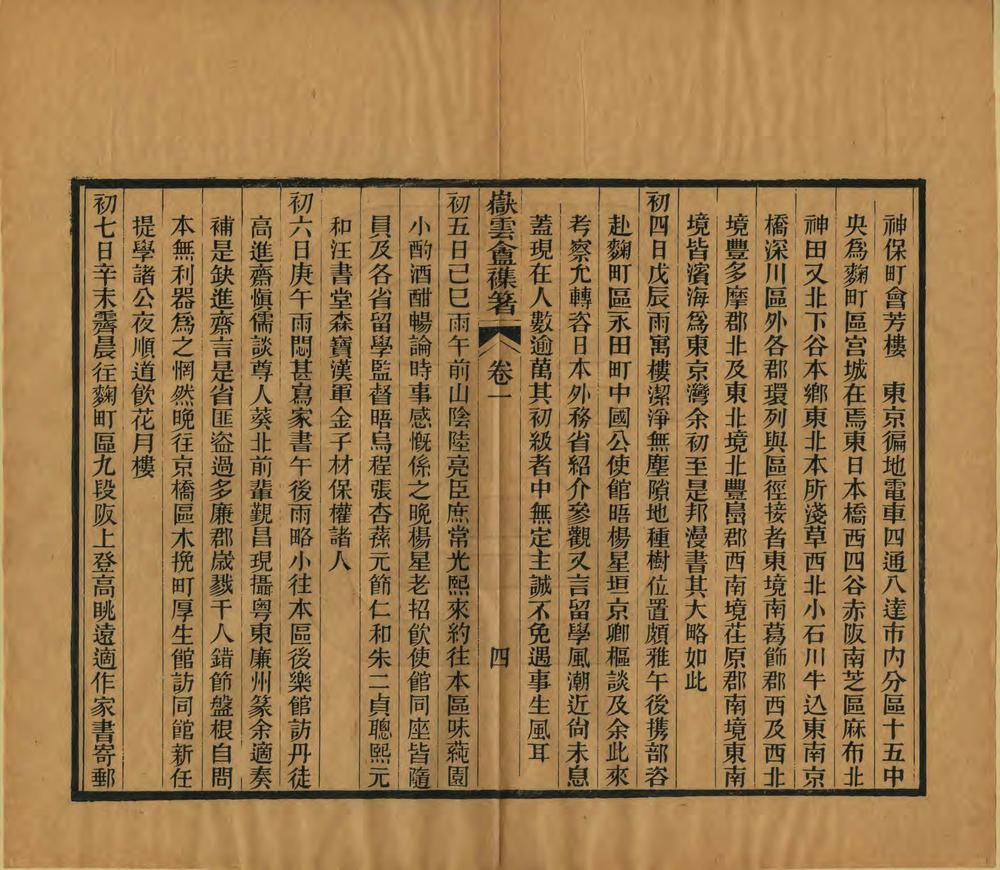 神保町會芳樓　東京徧地電車四通八達市內分區十五中
央爲麴町區宮城在焉東日本橋西四谷赤阪南芝區麻布北
神田又北下谷本鄉東北本所淺草西北小石川牛込東南京
橋深川區外各郡環列與區徑接者東境南葛飾郡西及西北
境豐多摩郡北及東北境北豐島郡西南境荏原郡南境東南
境皆濱海爲東京灣余初至是邦漫書其大略如此
初四日戊辰雨寓樓潔淨無塵隙地種樹位置頗雅午後携部咨
赴麴町區永田町中國公使館晤楊星垣京卿樞談及余此來
考察允轉咨日本外務省紹介參觀又言留學風潮近尙未息
蓋現在人數逾萬其初級者中無定主誠不免遇事生風耳
嶽雲盦襍箸　卷一　四
初五日己巳雨午前山陰陸亮臣庶常光熙來約往本區味蒓園
小酌酒酣暢論時事感慨係之晚楊星老招飮使館同座皆隨
員及各省留學監督晤烏程張杏蓀元節仁和朱二貞聰熙元
和汪書堂森寶漢軍金子材保權諸人
初六日庚午雨悶甚寫家書午後雨略小往本區後樂館訪丹徒
高進齋愼儒談尊人葵北前輩覲昌現攝粵東廉州篆余適奏
補是缺進齋言是省匪盜過多廉郡歲戮千人錯節盤根自問
本無利器爲之惘然晚往京橋區木挽町厚生館訪同館新任
提學諸公夜順道飮花月樓
初七日辛未霽晨往麴町區九段阪上登高眺遠適作家書寄郵